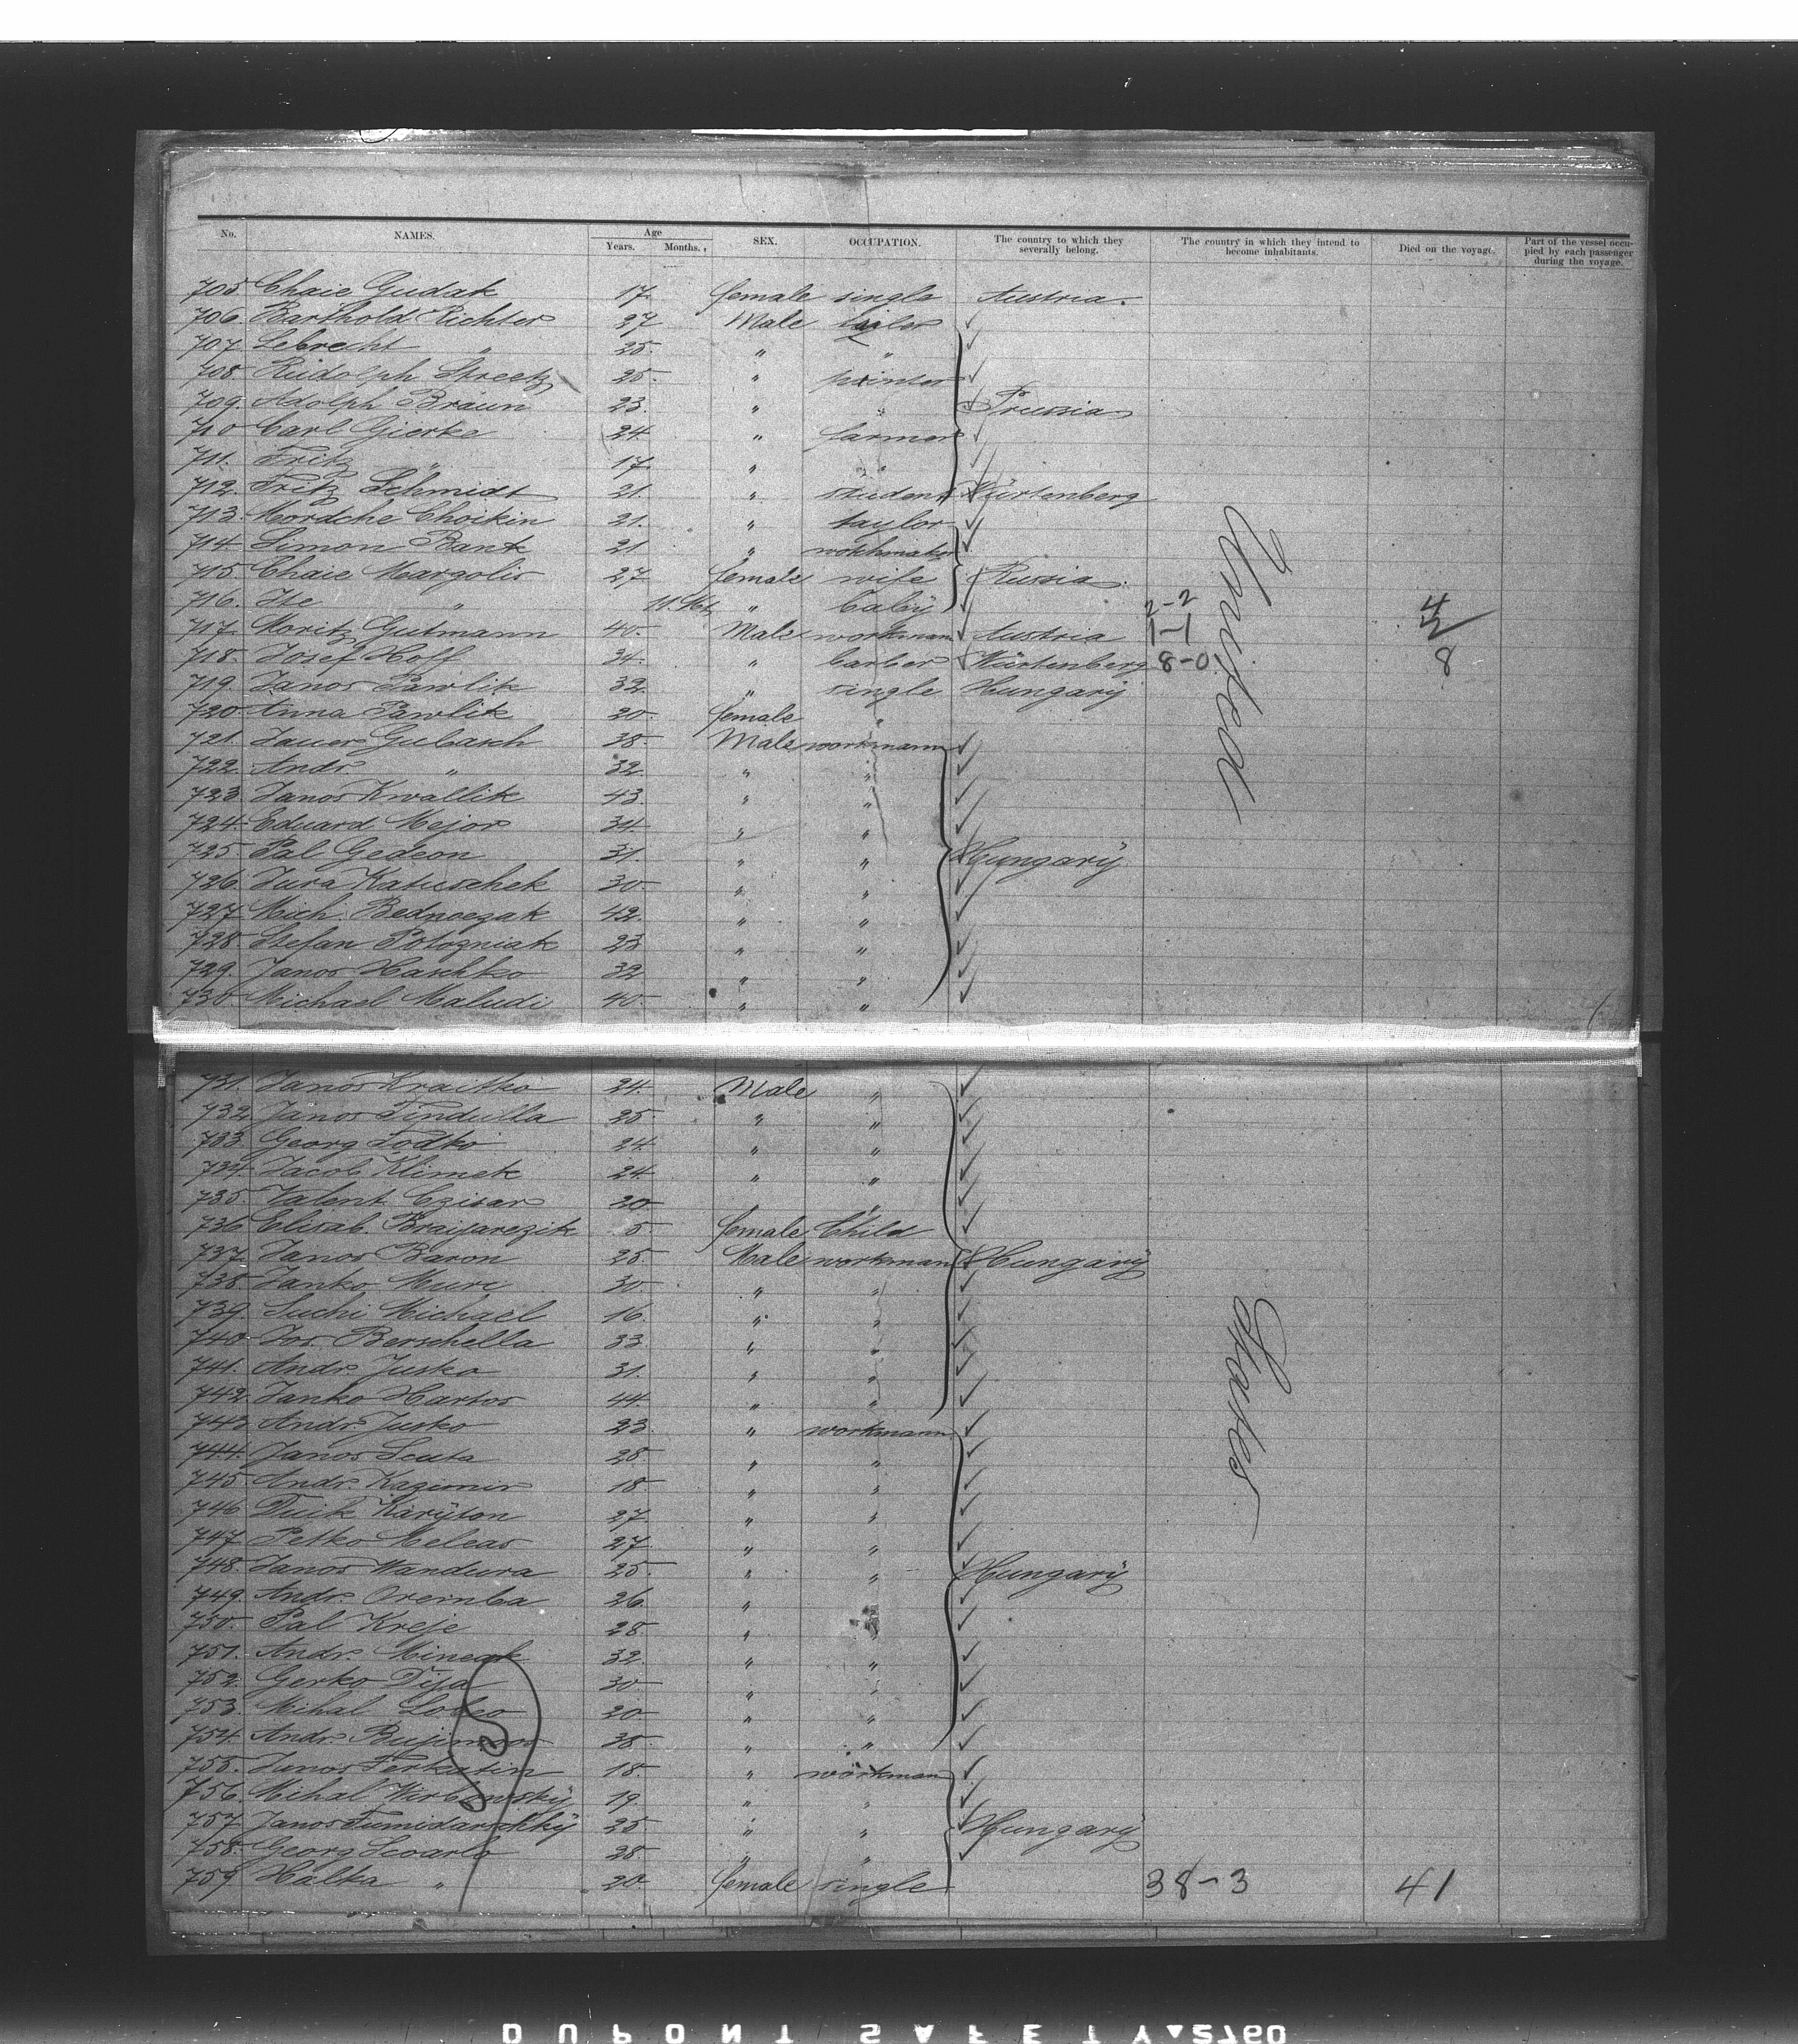 No. NAMES. Age Years. Months. SEX. OCCUPATION. The country to which they severally belong. The country in which they intend to become inhabitants. Died on the voyage. Part of the vessel occupied by each passenger during the voyage.
705 Chaie Gudak 17. female single Austria.
706. Barthold Richter 27 Male tailor ✓
707. Lebrecht " 25. " " ✓
708. Rudolph Streetz 25. " printer ✓
709. Adolph Braun 23. " " ✓ Prussia
710 Carl Gierke 24. " farmer ✓
711. Fritz " 17. " " ✓
712. Fritz Schmidt 21. " student Würtenberg
713. Mordche Choikin 21. " taylor ✓
714. Simon Rantz 21 " ✓
715. Chaie Margolis 27 female wife Russia.
716. Ite " 11 Mt. " baby ✓ 2-2 4
717. Moritz Gutmann 40. Male workman ✓ Austria 1-1
718. Josef Hoff 34. " barber ✓ Würtenberg 8-0 8
719. Janos Pawlik 32. " single Hungary
720. Anna Pawlik 20. female "
721. Janer Gulasch 38. Male workmann ✓
722. Andr. " 32. " " ✓
723. Janos Kwallik 43. " " ✓
724. Eduard Mejor 34. " " ✓
725. Pal Gedeon 31. " " ✓ Hungary
726. Jura Katuschek 30. " " ✓
727. Mich. Bednoczak 42. " " ✓
728. Stefan Polozniak 23 " " ✓
729. Janos Haschko 32 " " ✓
730. Michael Maludi 40. " " ✓
United
731. Janos Kraitko 24. Male " ✓
732. Janos Tindulla 25. " " ✓
733. Georg Lodko 24. " " ✓
734. Jacob Klimek 24. " " ✓
735. Valent. Czisar 20. " ✓
736. Elisab. 5 female Child ✓
737. Janos Baron 25. Male workman Hungary
738. Janko Murc 30. " " ✓
739. Suchi Michael 16. " " ✓
740. Jos. Berschella 33. " " ✓
741. Andr. Jusko 31. " " ✓
742. Janko Hartos 44. " " ✓
743. Andr. Jusko 23. " workmann ✓
744. Janos Scuta 28. " " ✓
745. Andr. Kazimir 18. " " ✓
746. Duik Karyton 27. " " ✓
747. Petko Meleas 27. " " ✓
748. Janos Wandura 25. " " ✓ Hungary
749. Andr. Oremba 26. " ✓
750. Pal Kreje 28. " " ✓
751. Andr. Mineak 32. " " ✓
752. Gerko 30. " " ✓
753. Mihal 20. " " ✓
754. Andr. 38. " " ✓
755. Janos 18. " workman ✓
756. Mihal 19. " " ✓
757. Janos 25. " " ✓ Hungary
758. Georg Scoarlo 28. " " ✓
759. Halka " 20. female single 38-3 41
States
DUPONT SAFETY 2760